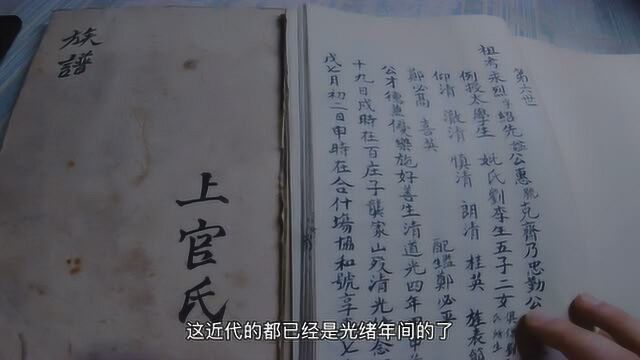 族譜
上官氏
第六世
祖考来烈字紹先諡公惠號克齋乃忠勤公
例授太學生 妣氏劉李生五子二女
仰清 澂清 慎清 朗清 桂英 旌表
鄭必萬 喜英 配 鄭必平
公才德兼優樂施好善生清道光四年甲申
十九日戌時在百庄子龔家山殁清光 念
戊七月初二日申時在合什場協和號享 七
这近代的都已经是光绪年间的了